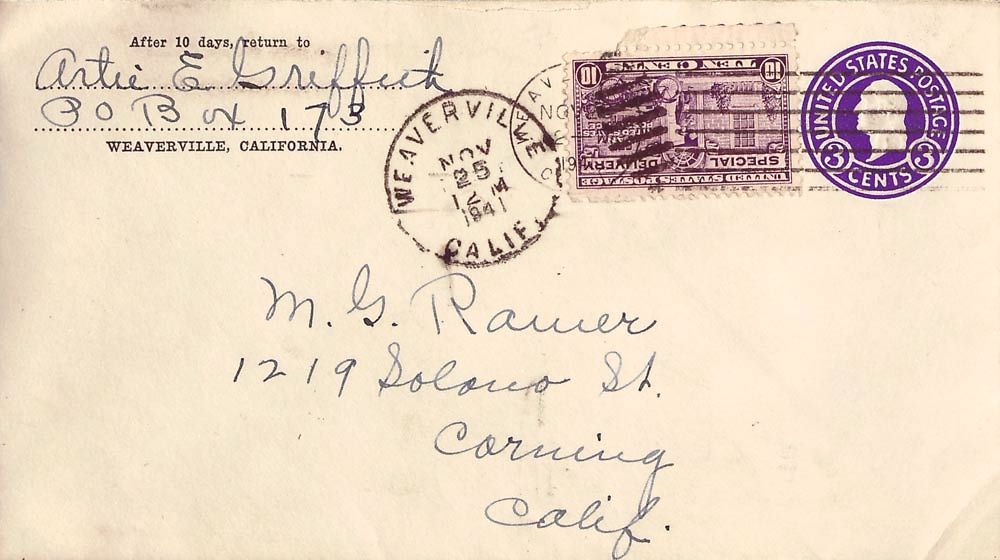 After 10 days, return to
Artie E Griffith
PO Box 173
WEAVERVILLE, CALIFORNIA.
WEAVERVILLE
NOV
25
M
1941
CALIF
NOV
TEN CENTS
10 10
SPECIAL DELIVERY
UNITED STATES POSTAGE
UNITED STATES POSTAGE
3 3
CENTS
M. G. Ramer
1219 Solono St.
Corning
Calif.